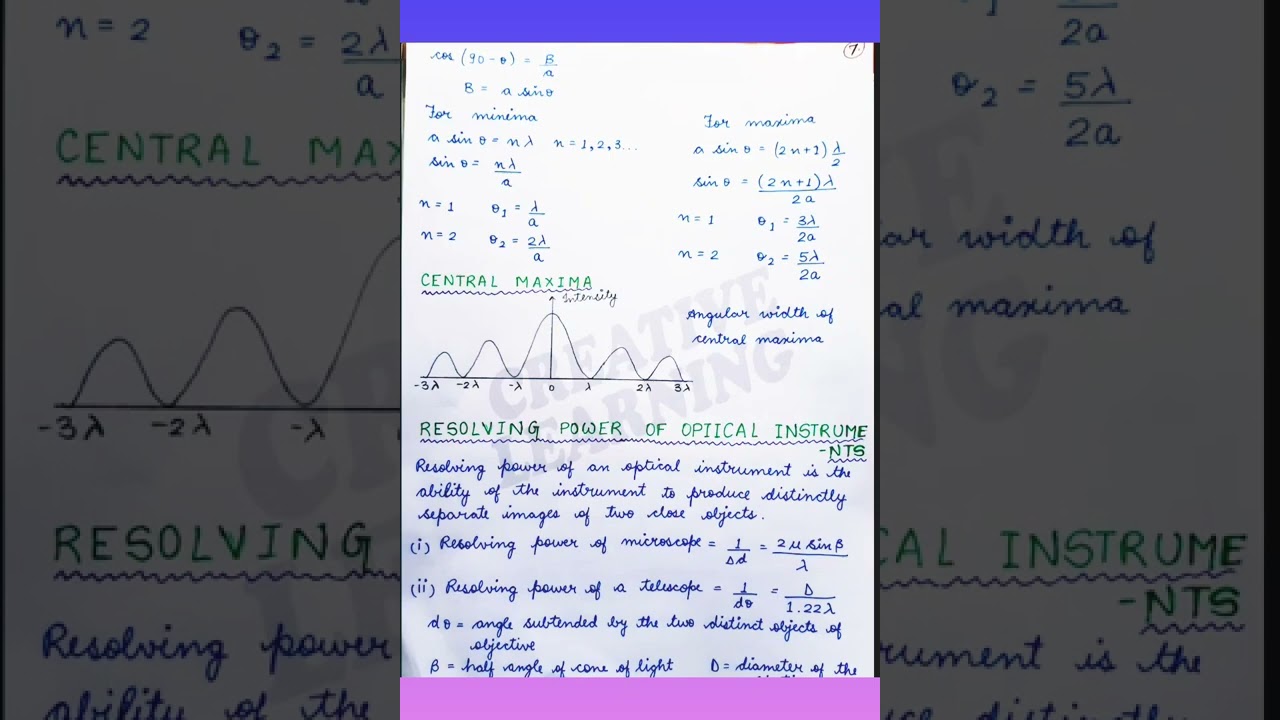 7.
cos (90 - θ) = B/a
B = a sinθ
For minima
a sin θ = nλ   n = 1, 2, 3...
sin θ = nλ/a
n = 1   θ₁ = λ/a
n = 2   θ₂ = 2λ/a
For maxima
a sin θ = (2n+1) λ/2
sin θ = (2n+1)λ/2a
n = 1   θ₁ = 3λ/2a
n = 2   θ₂ = 5λ/2a
CENTRAL MAXIMA
Intensity
-3λ -2λ -λ 0 λ 2λ 3λ
Angular width of
central maxima
CREATIVE
LEARNING
RESOLVING POWER OF OPIICAL INSTRUME
-NTS
Resolving power of an optical instrument is the
ability of the instrument to produce distinctly
separate images of two close objects.
(i) Resolving power of microscope = 1/Δd = 2μ sinβ/λ
(ii) Resolving power of a telescope = 1/dθ = D/1.22λ
dθ = angle subtended by the two distinct objects of
objective
β = half angle of cone of light   D = diameter of the